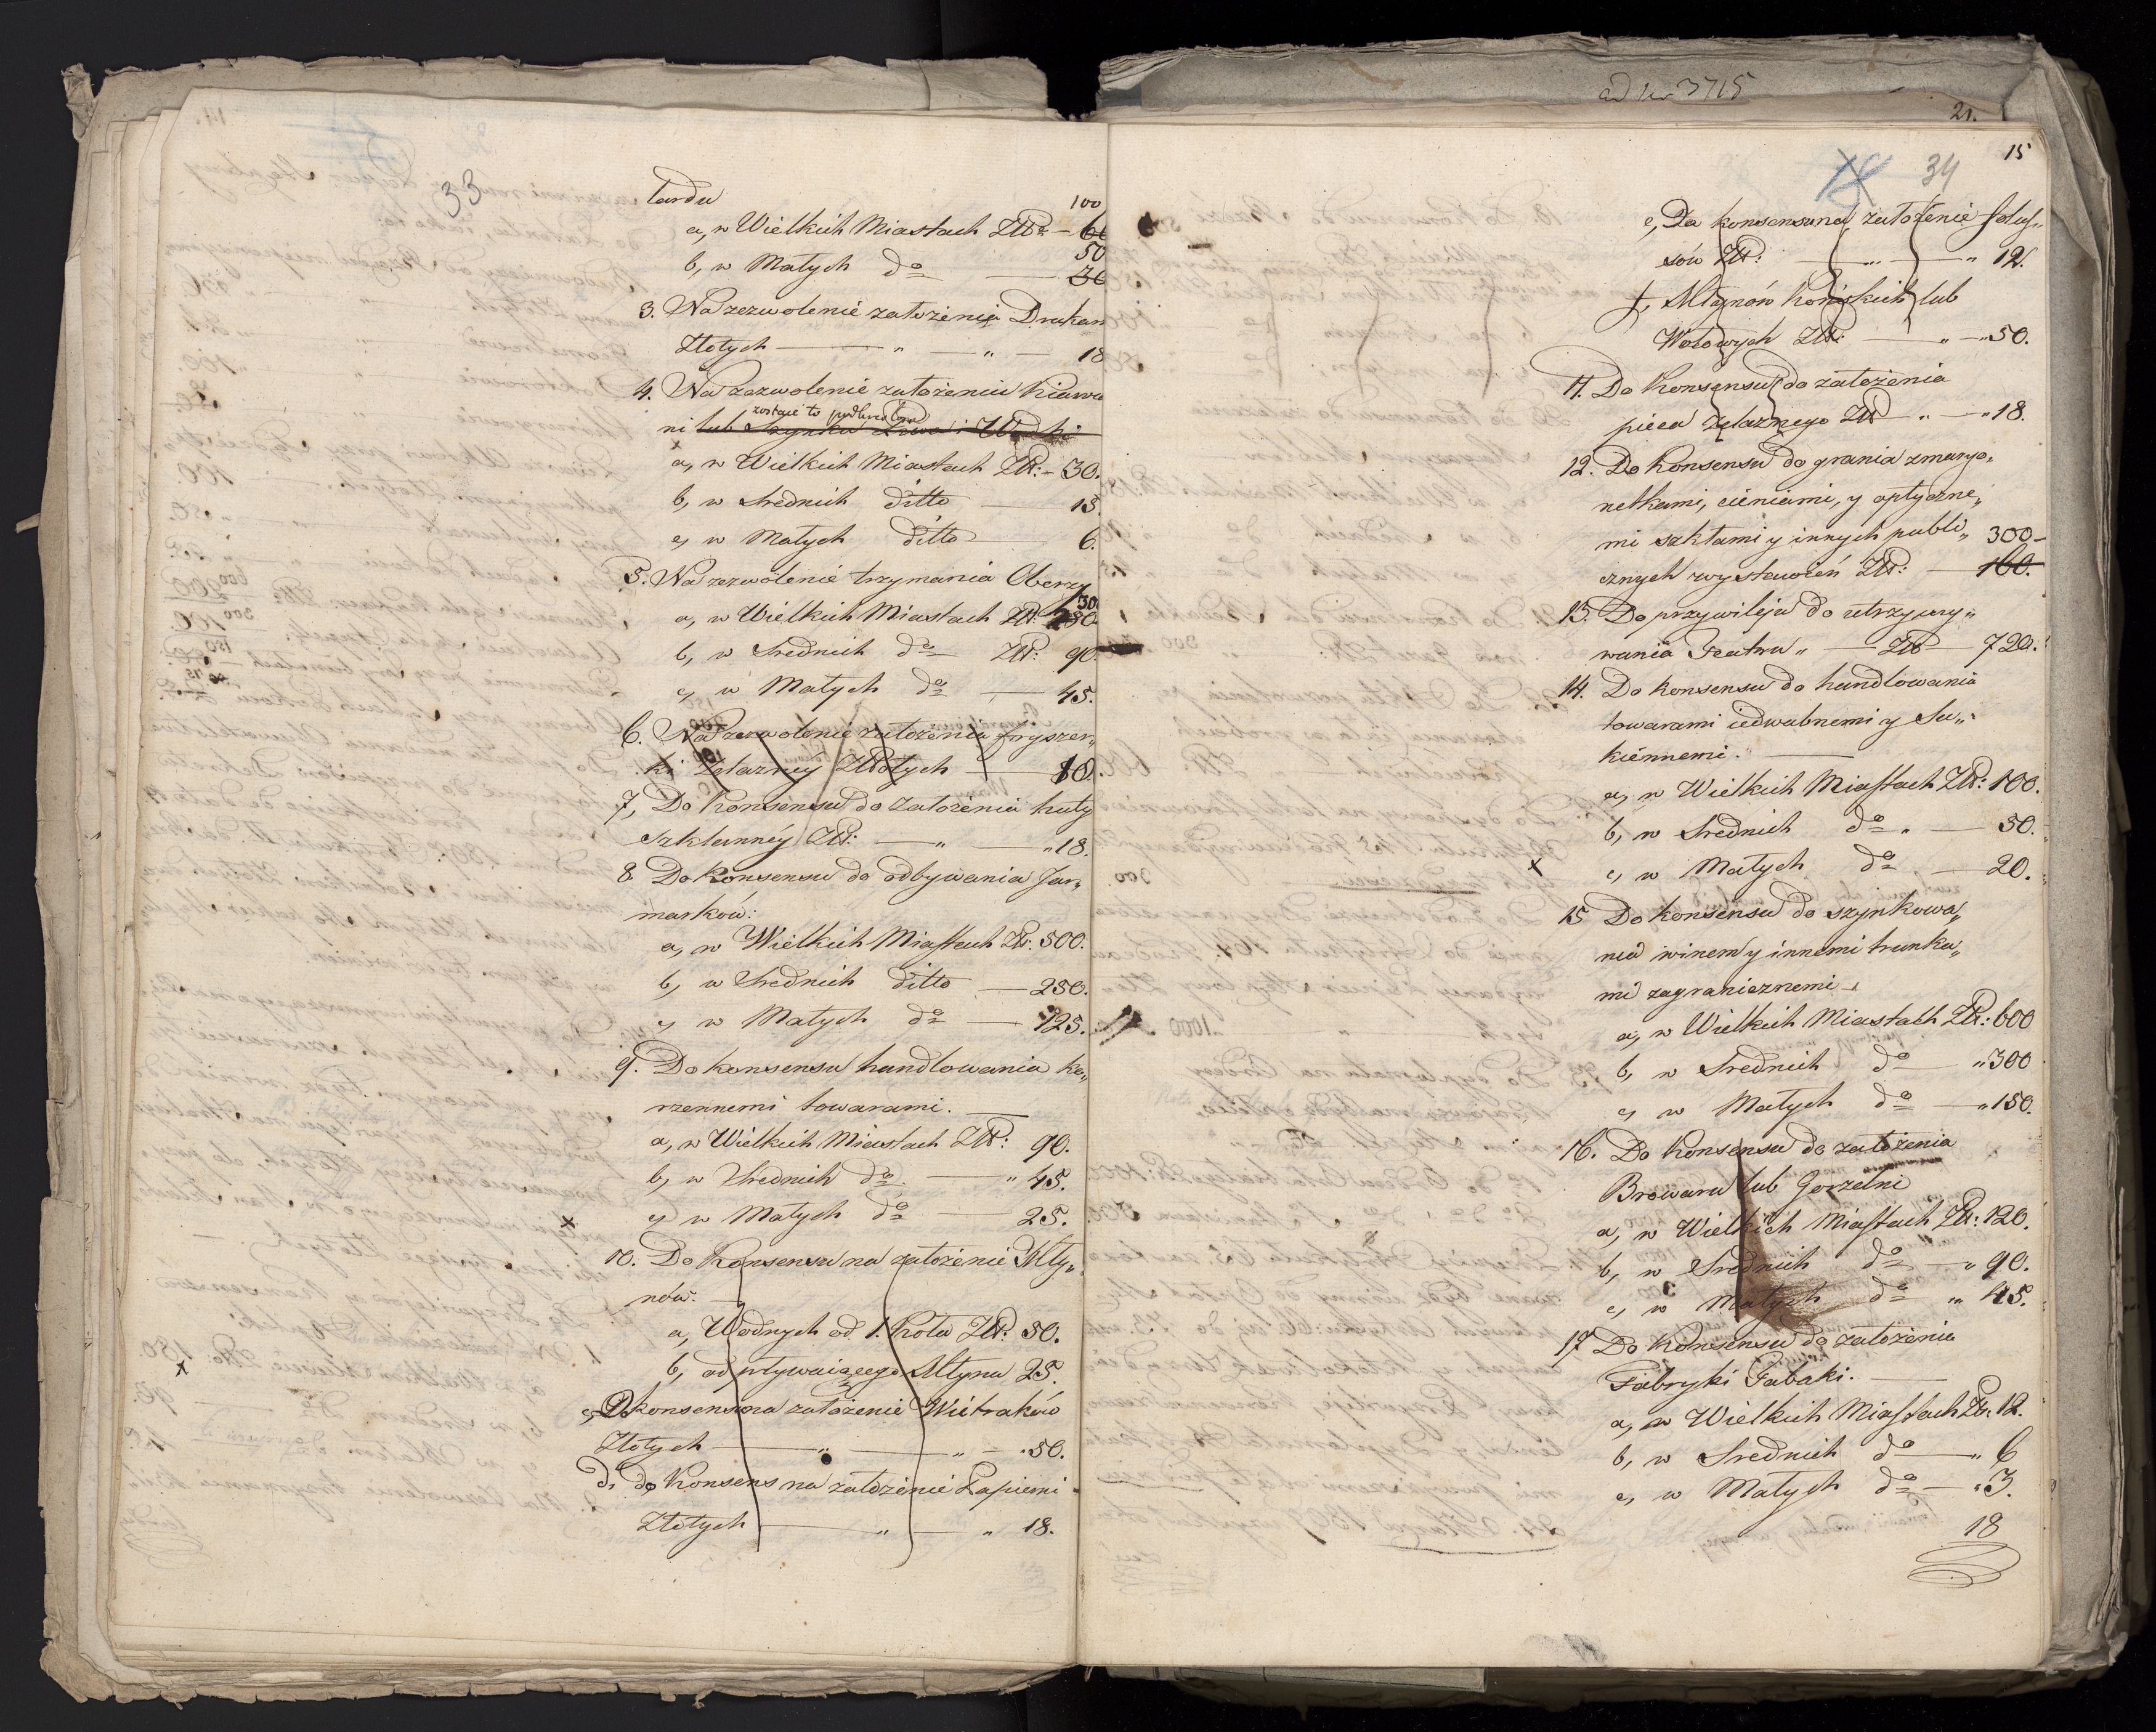 33
lardu
100
a, w Wielkich Miastach ZłP. — 60
50
b, w Małych do — 30
3. Na zezwolenie założenia Drukarn
Złotych — " — " — 18
4. Na zezwolenie założenia Kiawia
zostaie to podkreślone
ni lub Szynku Piwa i Wódki
a, w Wielkich Miastach ZłP: — 30.
b, w Srednich ditto — 18.
c, w Małych ditto — 6.
5. Na zezwolenie trzymania Oberzy
a, w Wielkich Miastach ZłP:
b, w Srednich do ZłP: 90.
c, w Małych do — 45.
6. Na zezwolenie założenia fryszer„
ki żelazney Złotych — 18.
7, Do Konsensu do założenia huty
Szklanney ZłP: — " — " 18.
8. Do Konsensu do odbywania Jar„
marków:
a, w Wielkich Miastach ZłP: 500.
b, w Srednich ditto — 250.
c, w Małych do — 125.
9. Do konsensu handlowania ko„
rzennemi towarami. —
a, w Wielkich Miastach ZłP: 90.
b, w Srednich do. — " 45.
x c, w Małych do — 25.
10. Do Konsensu na założenie Mły„
nów. —
a, Wodnych od 1. Koła ZłP: 50.
x b, od pływaiącego Młyna 25.
c, Do konsensu na założenie Wiatraków
Złotych — " — " — 50.
d, do Konsens na założenie Papierni
Złotych — " — " 18.
ad 3715
21.
15
14 34
e, Do konsensu na założenie folus„
sów ZłP: — " — " 12.
f, Młynów Końskich lub
Wołowych ZłP: — " — " 50.
11. Do Konsensu do założenia
pieca żelaznego ZłP — " — " 18.
12. Do Konsensu do grania z maryo„
netkami, cieniami, y optyczne„
mi szkłami y innych publi„ 300 —
cznych wystawień ZłP: — 160.
13. Do przywileju do utrzymy„
wania Teatru " — ZłP — 720.
14. Do konsensu do handlowania
towarami iedwabnemi y Su„
kiennemi. —
a, w Wielkich Miastach ZłP: 100.
b, w Srednich do " — 50.
x c, w Małych do — 20.
15 Do konsensu do szynkowa„
nia winem y innemi trunka„
mi zagranicznemi —
a, w Wielkich Miastach ZłP: 600
b, w Srednich do " 300
c, w Małych do — " 150.
16. Do Konsensu do założenia
Browaru lub Gorzelni
a, w Wielkich Miastach ZłP: 120.
b, w Srednich do — " 90.
c, w Małych do " 45.
17 Do Konsensu do założenia
Fabryki Tabaki. —
a, w Wielkich Miastach ZłP: 12.
b, w Srednich do — " 6
c, w Małych do — " 3.
18